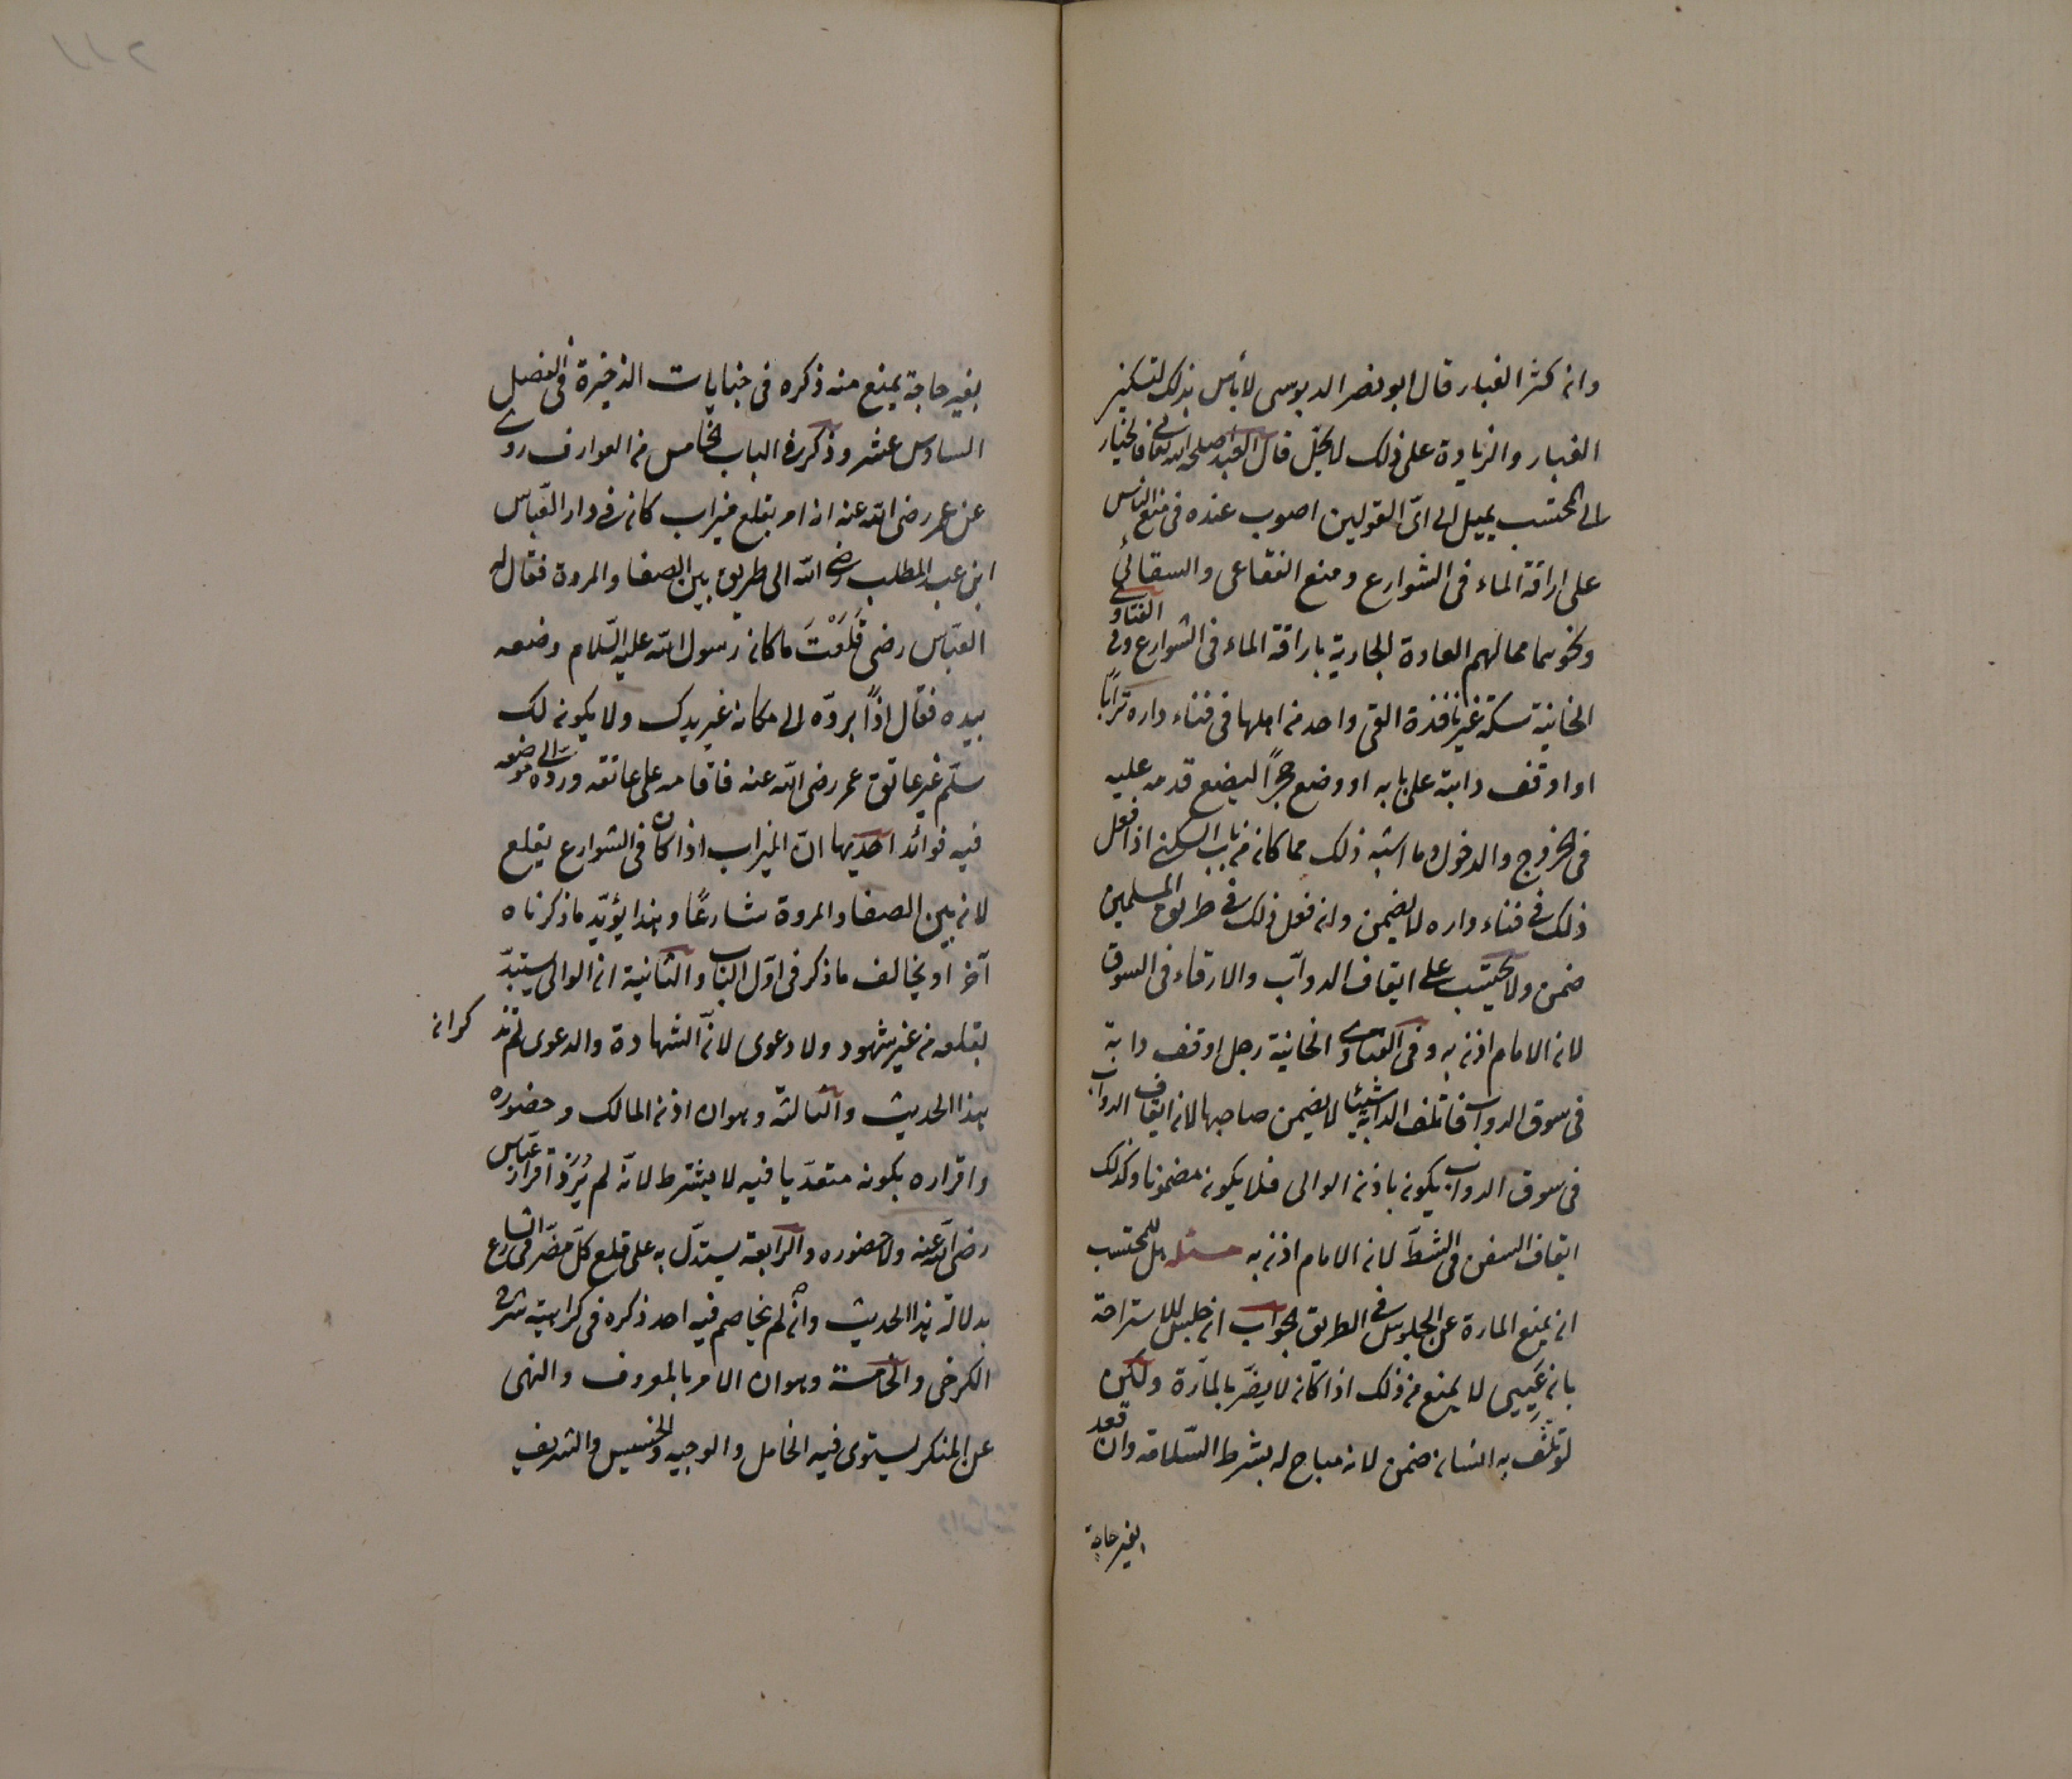 وان كثر الغبار قال ابو نصر الدبوسى لا بأس بذلك لتسكين
الغبار والزيادة على ذلك لا يحل قال العبد اصلحه الله تعالى فالخيار
الى المحتسب يميل الى اىّ القولين اصوب عنده فى منع الناس
على اراقة الماء فى الشوارع ومنع الفقاعى والسقائى
ونحوهما مما لهم العادة الجارية باراقة الماء فى الشوارع وفى الفتاوى
الخانية سكة غير نافذة القى واحد من اهلها فى فناء داره ترابًا
او اوقف دابة على بابه او وضع حجرًا ليضع قدمه عليه
فى الخروج والدخول وما اشبه ذلك مما كان من باب السكنى اذا فعل
ذلك فى فناء داره لا يضمن وان فعل ذلك فى طريق المسلمين
ضمن ولا يحتسب على ايقاف الدوابّ والارقاء فى السوق
لان الامام اذن به وفى الفتاوى الخانية رجل اوقف دابة
فى سوق الدواب فاتلف الدابة شيئا لا يضمن صاحبها لان ايقاف الدواب
فى سوق الدواب يكون باذن الوالى فلا يكون مضمونا وكذلك
ايقاف السفن فى الشطّ لان الامام اذن به مسئله هل للمحتسب
ان يمنع المارة عن الجلوس فى الطريق الجواب ان جلس للاستراحة
بان عَيِيى لا يمنع من ذلك اذا كان لا يضرّ بالمارّة ولكن
لو تلف به انسان ضمن لانه مباح له بشرط السّلامة وان قعد
بغير حاجة
بغير حاجة يمنع منه ذكره فى جنايات الذخيرة فى الفصل
السادس عشر وذكر فى الباب الخامس من العوارف روى
عن عمر رضى الله عنه انه امر بقلع ميزاب كان فى دار العبّاس
ابن عبد المطلب رضى الله الى طريق بين الصفا والمروة فقال له
العبّاس رضى قَلَعْتَ ما كان رسول الله عليه السّلام وضعه
بيده فقال اذًا يردّه الى مكانه غير يدك ولا يكون لك
سلّم غير عاتق عمر رضى الله عنه فاقامه على عاتقه وردّه الى موضعه
فيه فوائد احديها انّ الميزاب اذا كان فى الشوارع يقلع
لان بين الصفا والمروة شارعًا وهذا يؤيّد ما ذكرناه
آخرا ويخالف ما ذكر فى اوّل الباب والثانية ان الوالى يستبدّ
بقلعه من غير شهود ولا دعوى لانّ الشهادة والدعوى لم تذكرا فى
هذا الحديث والثالثة وهو ان اذن المالك وحضوره
واقراره بكونه متعدّيا فيه لا يشترط لانّه لم يُرْوَ اقرار عباس
رضى الله عنه ولا حضوره والرابعة يستدلّ به على قلع كلّ مضرّ فى الشارع
بدلالة هذا الحديث وانه لم يخاصم فيه احد ذكره فى كراهية شرح
الكرخى والخامسة وهو ان الامر بالمعروف والنهى
عن المنكر يستوى فيه الخامل والوجيه والخسيس والشريف